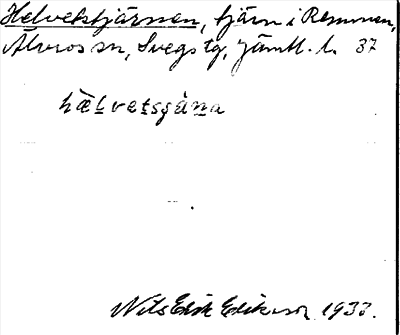 Helvetstjärnen, tjärn i Remmen,
Älvros sn, Svegs tg, Jämtl. l. 37
hæ̀lvetsgàna
Nils Erik Eriksson 1933.